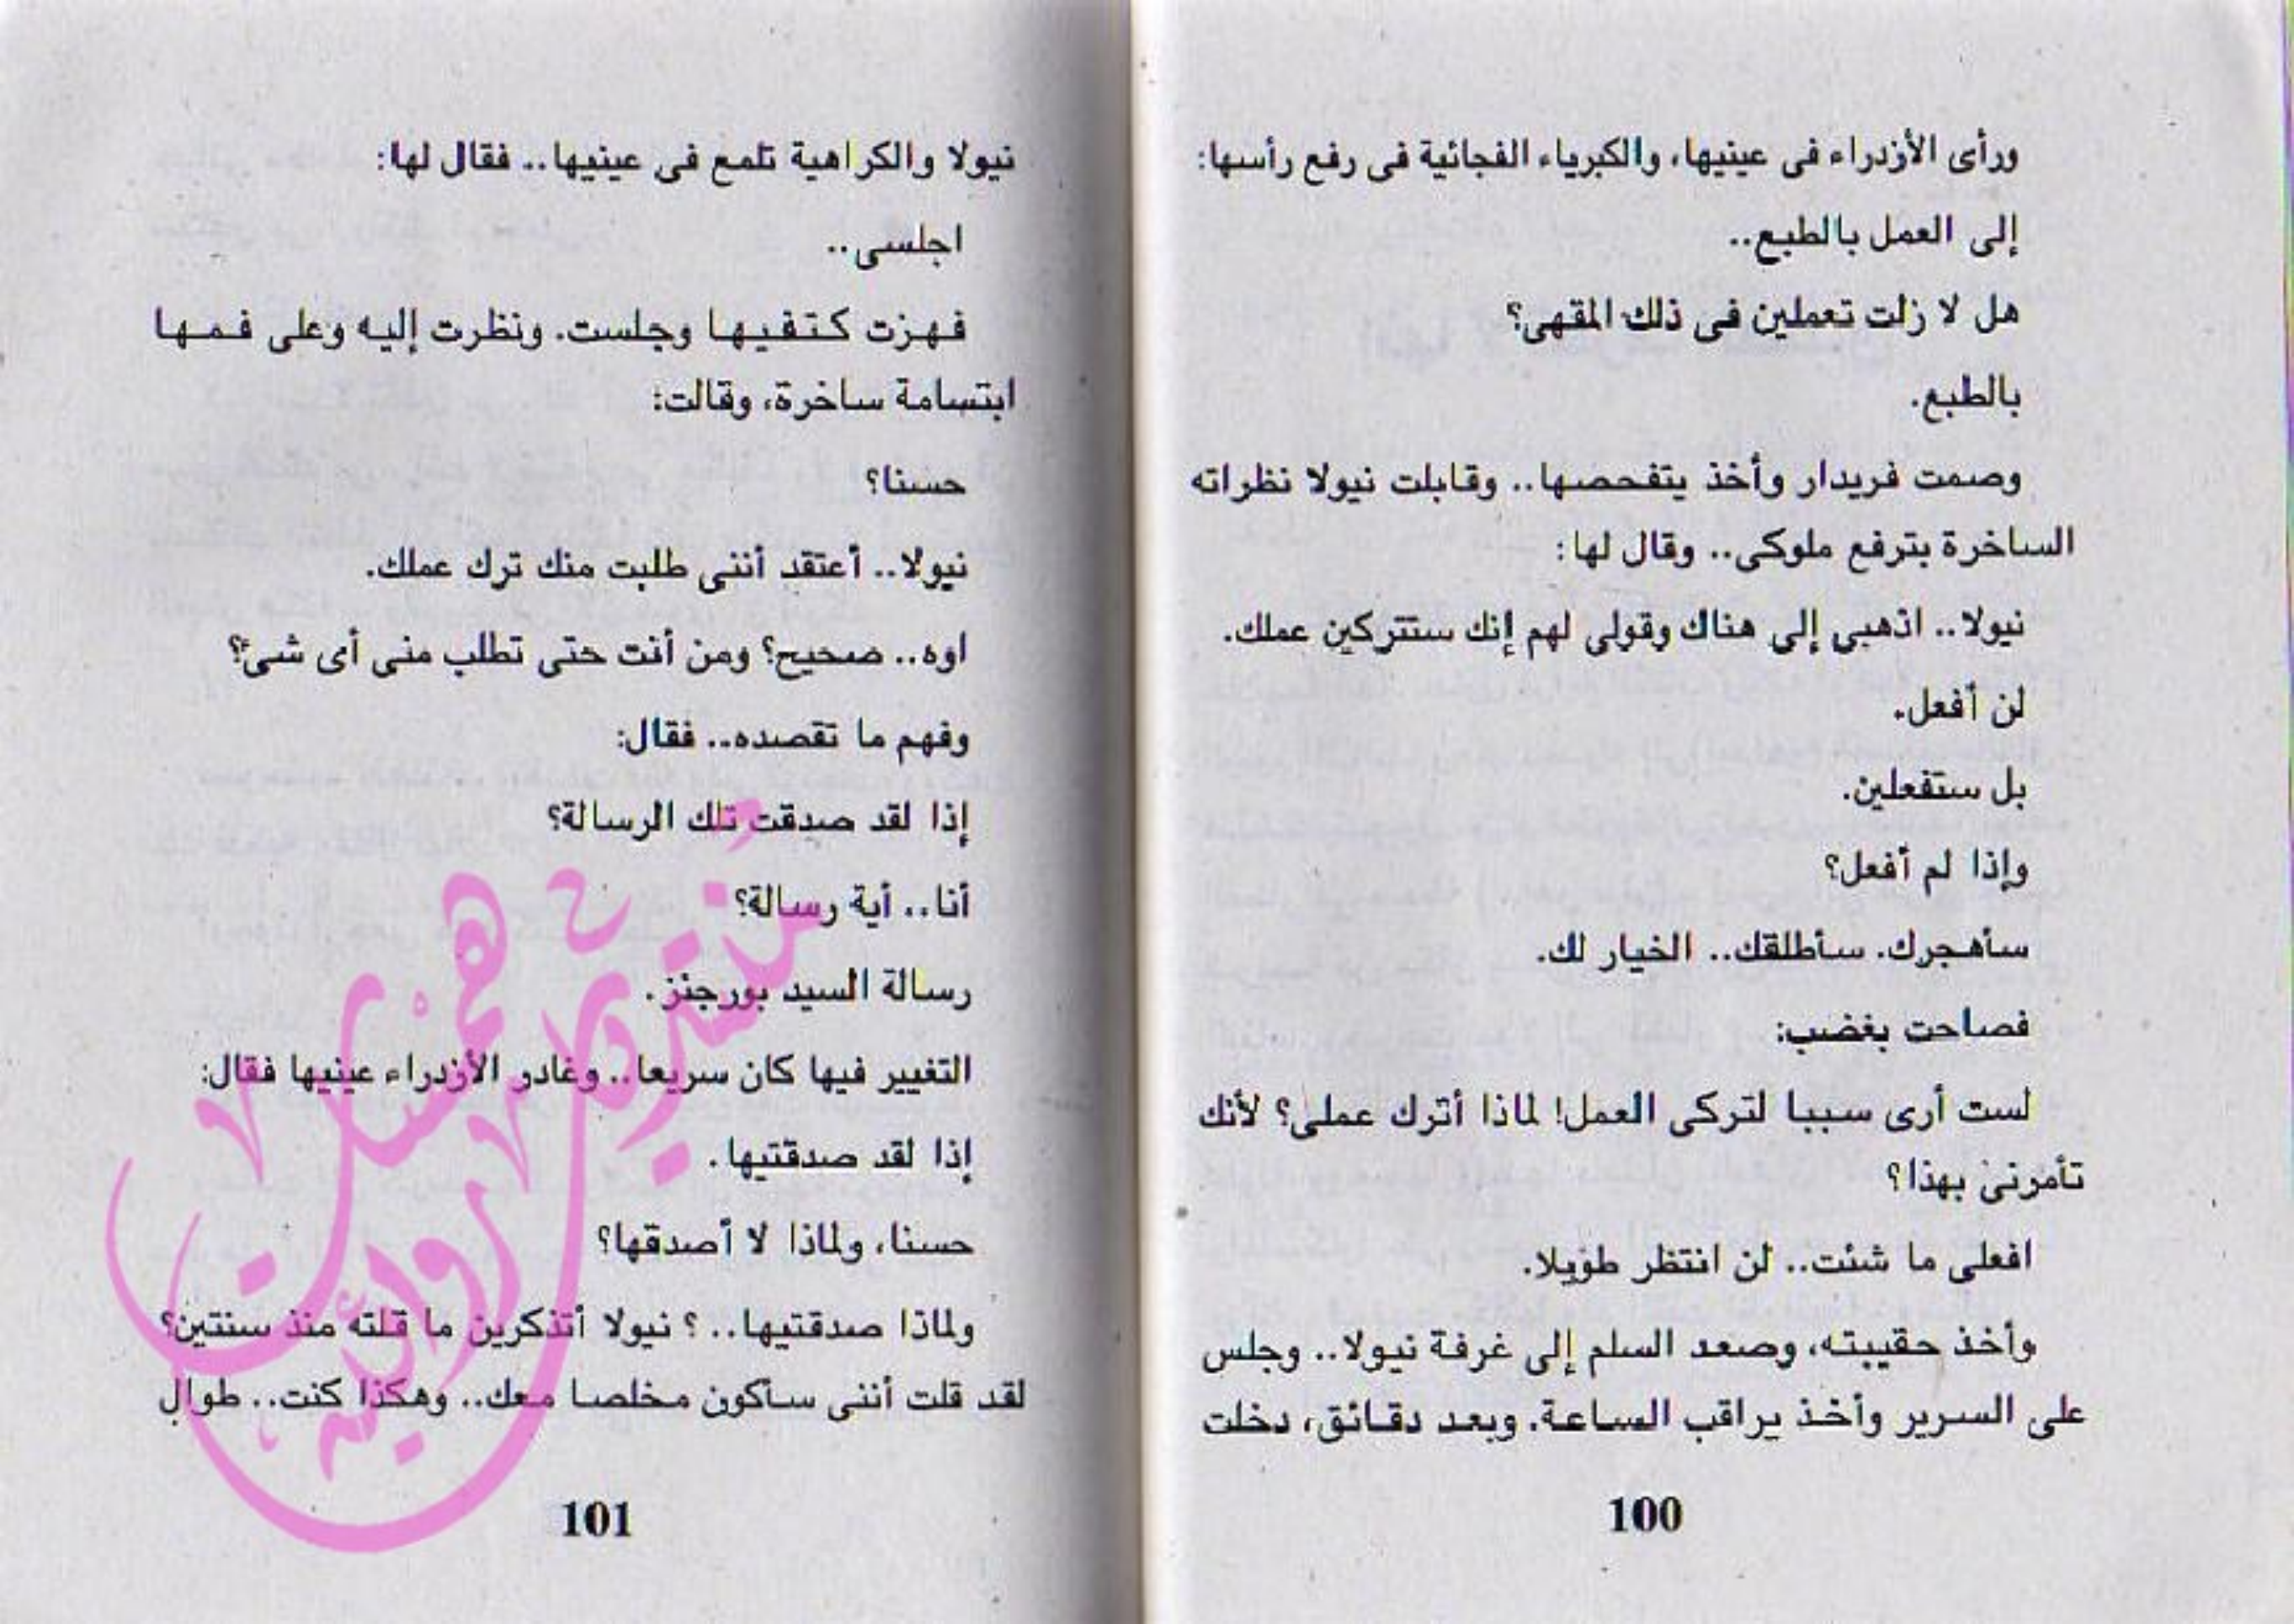 ورأى الأزدراء فى عينيها، والكبرياء الفجائية فى رفع رأسها:
إلى العمل بالطبع..
هل لا زلت تعملين فى ذلك المقهى؟
بالطبع.
وصمت فريدار وأخذ يتفحصها.. وقابلت نيولا نظراته
الساخرة بترفع ملوكى.. وقال لها:
نيولا.. اذهبى إلى هناك وقولى لهم إنك ستتركين عملك.
لن أفعل.
بل ستفعلين.
وإذا لم أفعل؟
سأهجرك. سأطلقك.. الخيار لك.
فصاحت بغضب:
لست أرى سببا لتركى العمل! لماذا أترك عملى؟ لأنك
تأمرنى بهذا؟
افعلى ما شئت.. لن انتظر طويلا.
وأخذ حقيبته، وصعد السلم إلى غرفة نيولا.. وجلس
على السرير وأخذ يراقب الساعة. وبعد دقائق، دخلت
100
نيولا والكراهية تلمع فى عينيها.. فقال لها:
اجلسى..
فهزت كتفيها وجلست. ونظرت إليه وعلى فمها
ابتسامة ساخرة، وقالت:
حسنا؟
نيولا.. أعتقد أننى طلبت منك ترك عملك.
اوه.. صحيح؟ ومن أنت حتى تطلب منى أى شئ؟
وفهم ما تقصده.. فقال:
إذا لقد صدقت تلك الرسالة؟
أنا.. أية رسالة؟
رسالة السيد بورجنز.
التغيير فيها كان سريعا.. وغادر الأزدراء عينيها فقال:
إذا لقد صدقتيها.
حسنا، ولماذا لا أصدقها؟
ولماذا صدقتيها..؟ نيولا أتذكرين ما قلته منذ سنتين؟
لقد قلت أننى سأكون مخلصا معك.. وهكذا كنت.. طوال
101